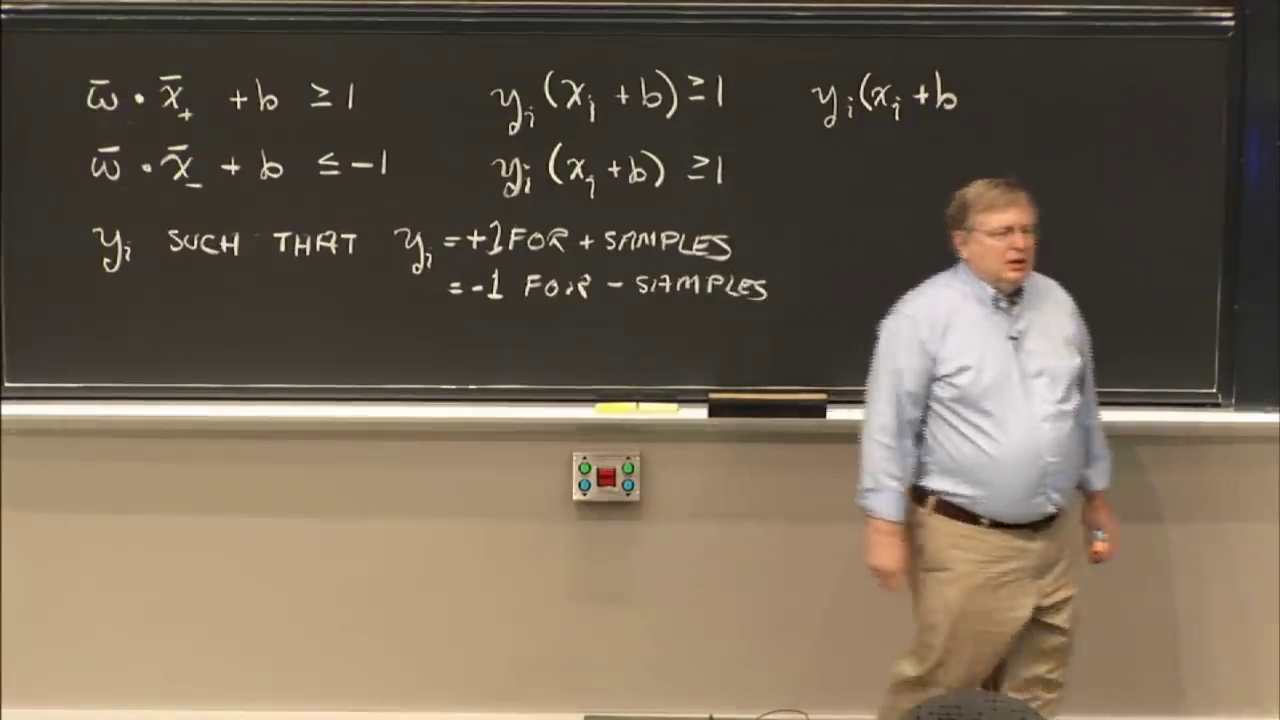 w̄ · x̄₊ + b ≥ 1 yᵢ (xᵢ + b) ≥ 1 yᵢ (xᵢ + b
w̄ · x̄₋ + b ≤ -1 yᵢ (xᵢ + b) ≥ 1
yᵢ SUCH THAT yᵢ = +1 FOR + SAMPLES
= -1 FOR - SAMPLES